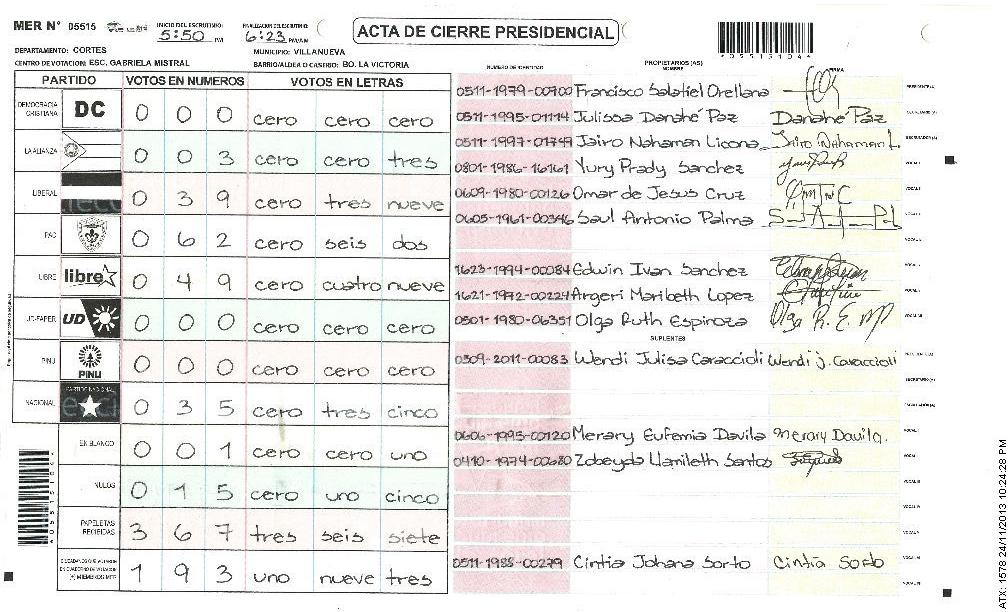 MER N° 05515 INICIO DEL ESCRUTINIO: 5:50 PM FINALIZACION DEL ESCRUTINIO: 6:23 PM/AM
ACTA DE CIERRE PRESIDENCIAL
*05515104*
DEPARTAMENTO: CORTES MUNICIPIO: VILLANUEVA
CENTRO DE VOTACION: ESC. GABRIELA MISTRAL BARRIO/ALDEA O CASERIO: BO. LA VICTORIA
PARTIDO VOTOS EN NUMEROS VOTOS EN LETRAS
DEMOCRACIA CRISTIANA DC 0 0 0 cero cero cero
LA ALIANZA 0 0 3 cero cero tres
LIBERAL 0 3 9 cero tres nueve
PAC 0 6 2 cero seis dos
LIBRE libre 0 4 9 cero cuatro nueve
UD-FAPER UD 0 0 0 cero cero cero
PINU PINU 0 0 0 cero cero cero
NACIONAL PARTIDO NACIONAL 0 3 5 cero tres cinco
EN BLANCO 0 0 1 cero cero uno
NULOS 0 1 5 cero uno cinco
PAPELETAS RECIBIDAS 3 6 7 tres seis siete
CIUDADANOS QUE VOTARON EN CUADERNO DE VOTACION (+) MIEMBROS MER 1 9 3 uno nueve tres
NUMERO DE IDENTIDAD PROPIETARIOS (AS) NOMBRE FIRMA
0511-1979-00700 Francisco Salatiel Orellana PRESIDENTE(A)
0511-1995-01114 Julissa Danahé Paz Danahé Paz SECRETARIO(A)
0511-1997-01749 Jairo Nahaman Licona Jairo Nahaman L. ESCRUTADOR(A)
0801-1986-16161 Yury Prady Sanchez VOCAL I
0609-1980-00126 Omar de Jesus Cruz VOCAL II
0605-1961-00346 Saul Antonio Palma
1623-1994-00084 Edwin Ivan Sanchez
1621-1972-00224 Argeri Maribeth Lopez
0501-1980-06351 Olga Ruth Espinoza Olga R. E. M
SUPLENTES
0309-2011-00083 Wendi Julisa Caraccioli Wendi j. Caraccioli PRESIDENTE(A)
SECRETARIO(A)
ESCRUTADOR(A)
0606-1995-00120 Merary Eufemia Davila Merary Davila.
0410-1974-00680 Zobeyda Llamileth Santos
0511-1988-00279 Cintia Johana Sorto Cintia Sorto
ATX: 1578 24/11/2013 10:24:28 PM